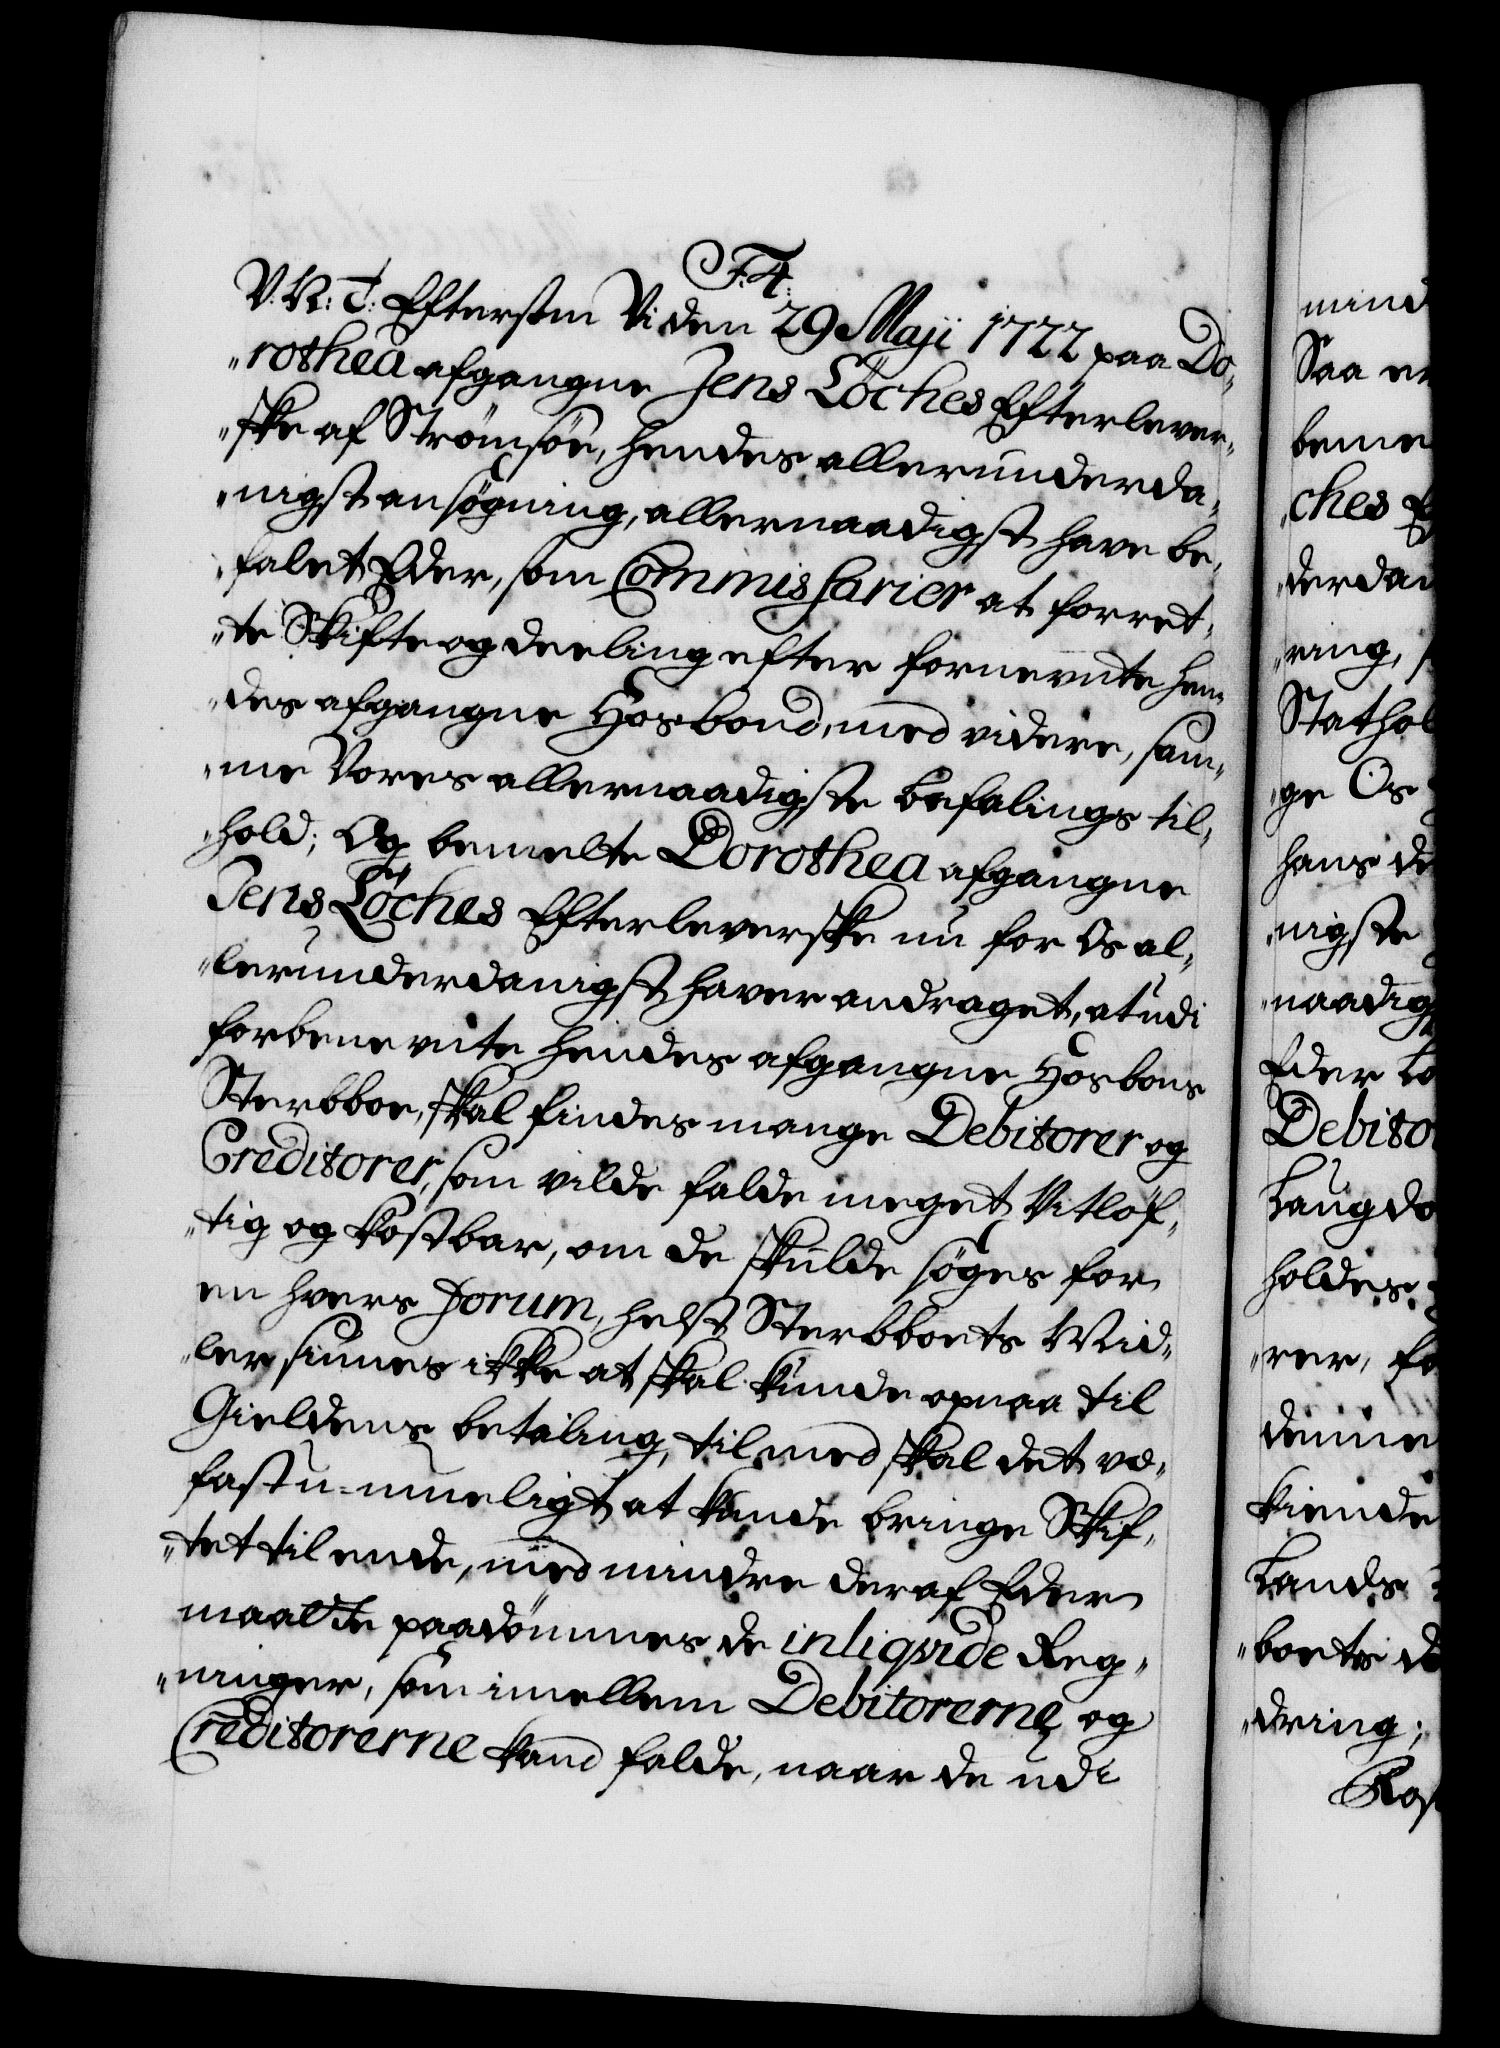 F. 4.
V. K: T: Eftersom Vi den 29 Maji 1722 paa Do-
„rothea afgangne Jens Löches Efterlever-
„ske af Strömsöe, hendes allerunderda-
„nigst ansögning, allernaadigst have be-
„falet Eder, som Commissarier at forret-
„te Skifte og deeling efter fornevnte hen-
„des afgangne Hosbond, med videre, sam-
„me Vores allernaadigste befalings til-
„hold; Og bemelte Dorothea afgangne
Jens Löches Efterleverske nu for Os al-
„lerunderdanigst haver andraget, at udi
forbenevnte hendes afgangne Hosbons
Sterbboe, skal findes mange Debitorer og
Creditorer, som vilde falde meget Vitlöf-
„tig og kostbar, om de skulde söges for
en hvers Forum, helst Sterbboets Mid-
„ler siunes ikke at skal kunde opnaa til
Gieldens betaling, tilmed skal det være
fast u-mueligt at kunde bringe Skif-
„tet til ende, med mindre der af Eder
maatte paadömmes de inliqvide Reg-
„ninger, som imellem Debitorerne og
Creditorerne kand falde, naar de udi
mind
Saa er
beme
„ches E
„derdan
„ring, s
Stathol
„ge Os
hans de
„nigste
„naadig
Eder ko
Debito
Laugdo
holdes
„rer, fo
denne
kiende
Lands
„boets d
„dring;
Ros